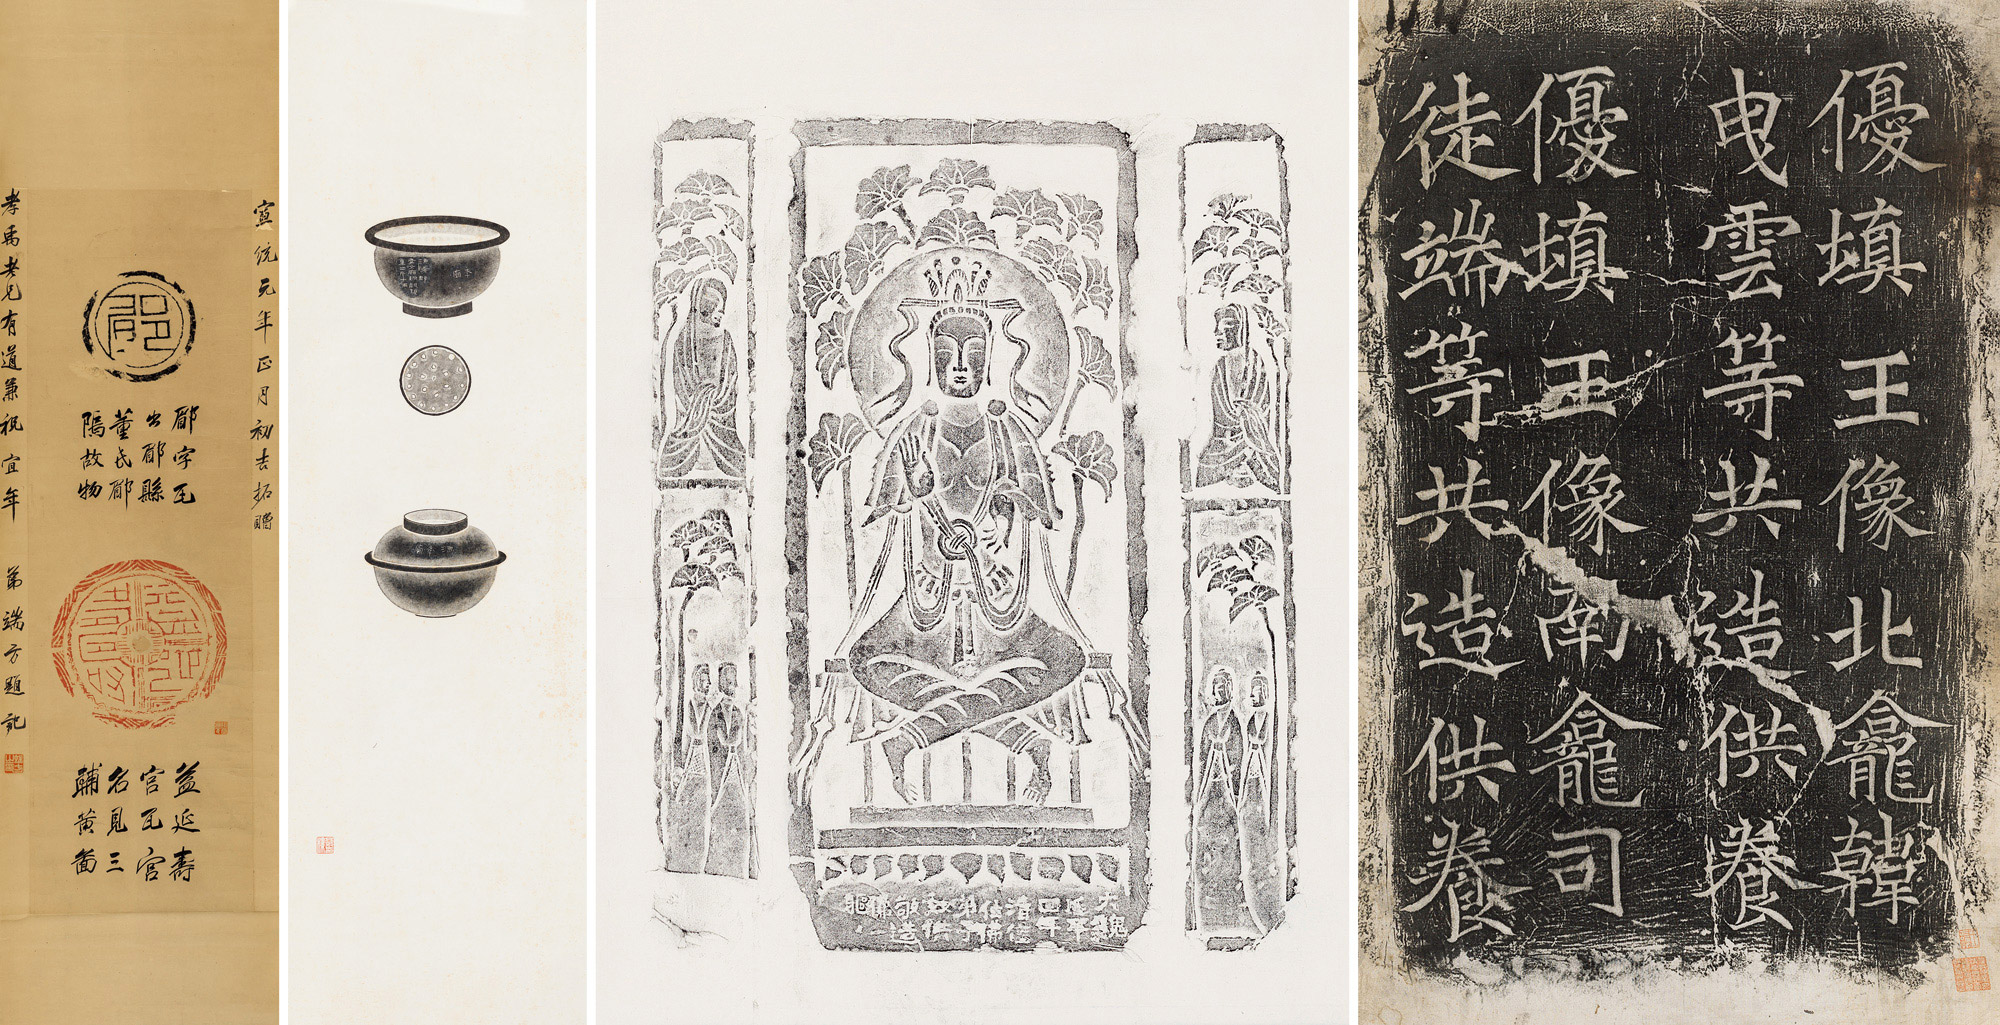 宣統元年正月初吉拓贈
孝禹老兄有道兼祝宜年 弟端方題記
郿
郿字瓦
出郿縣
董氏郿
隖故物
益延壽
宮瓦宮
名見三
輔黃圖
大魏
四年
清信
弟子
敬造
佛一
軀
優填王像北龕韓
曳雲等共造供養
優填王像南龕司
徒端等共造供養